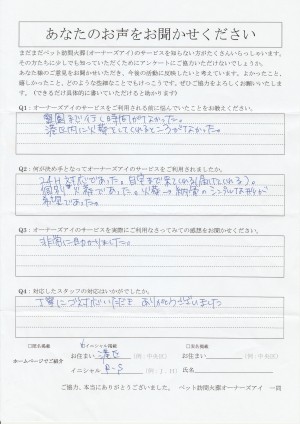 あなたのお声をお聞かせください
まだまだペット訪問火葬(オーナーズアイ)のサービスを知らない方がたくさんいらっしゃいます。
その方たちに少しでも知っていただくためにアンケートにご協力いただけないでしょうか。
あなた様のご意見をお聞かせいただき、今後の活動に反映したいと考えています。よかったこと、
嬉しかったこと、どのような些細なことでもけっこうです。ぜひご協力をよろしくお願いいたしま
す。（できるだけ具体的に書いていただけると助かります）
Q1：オーナーズアイのサービスをご利用される前に悩んでいたことをお教えください。
霊園まで行く時間がなかった。
港区内に火葬をしてくれるところがなかった。
Q2：何が決め手となってオーナーズアイのサービスをご利用されましたか。
24H対応であった。自宅まで来てくれる(届けてくれる)。
個別火葬であった。火葬→納骨のシンプルな形が
希望であった。
Q3：オーナーズアイのサービスを実際にご利用なさってみての感想をお聞かせください。
非常に助かりました。
Q4：対応したスタッフの対応はいかがでしたか。
丁寧にご対応いただき ありがとうございました
□イニシャル掲載
□実名掲載
ホームページでご紹介
お住まい 港区 （例：中央区）
お住まい （例：中央区）
イニシャル R-S （例：J．H）
氏名
ご協力、本当にありがとうございました。 ペット訪問火葬オーナーズアイ 一同